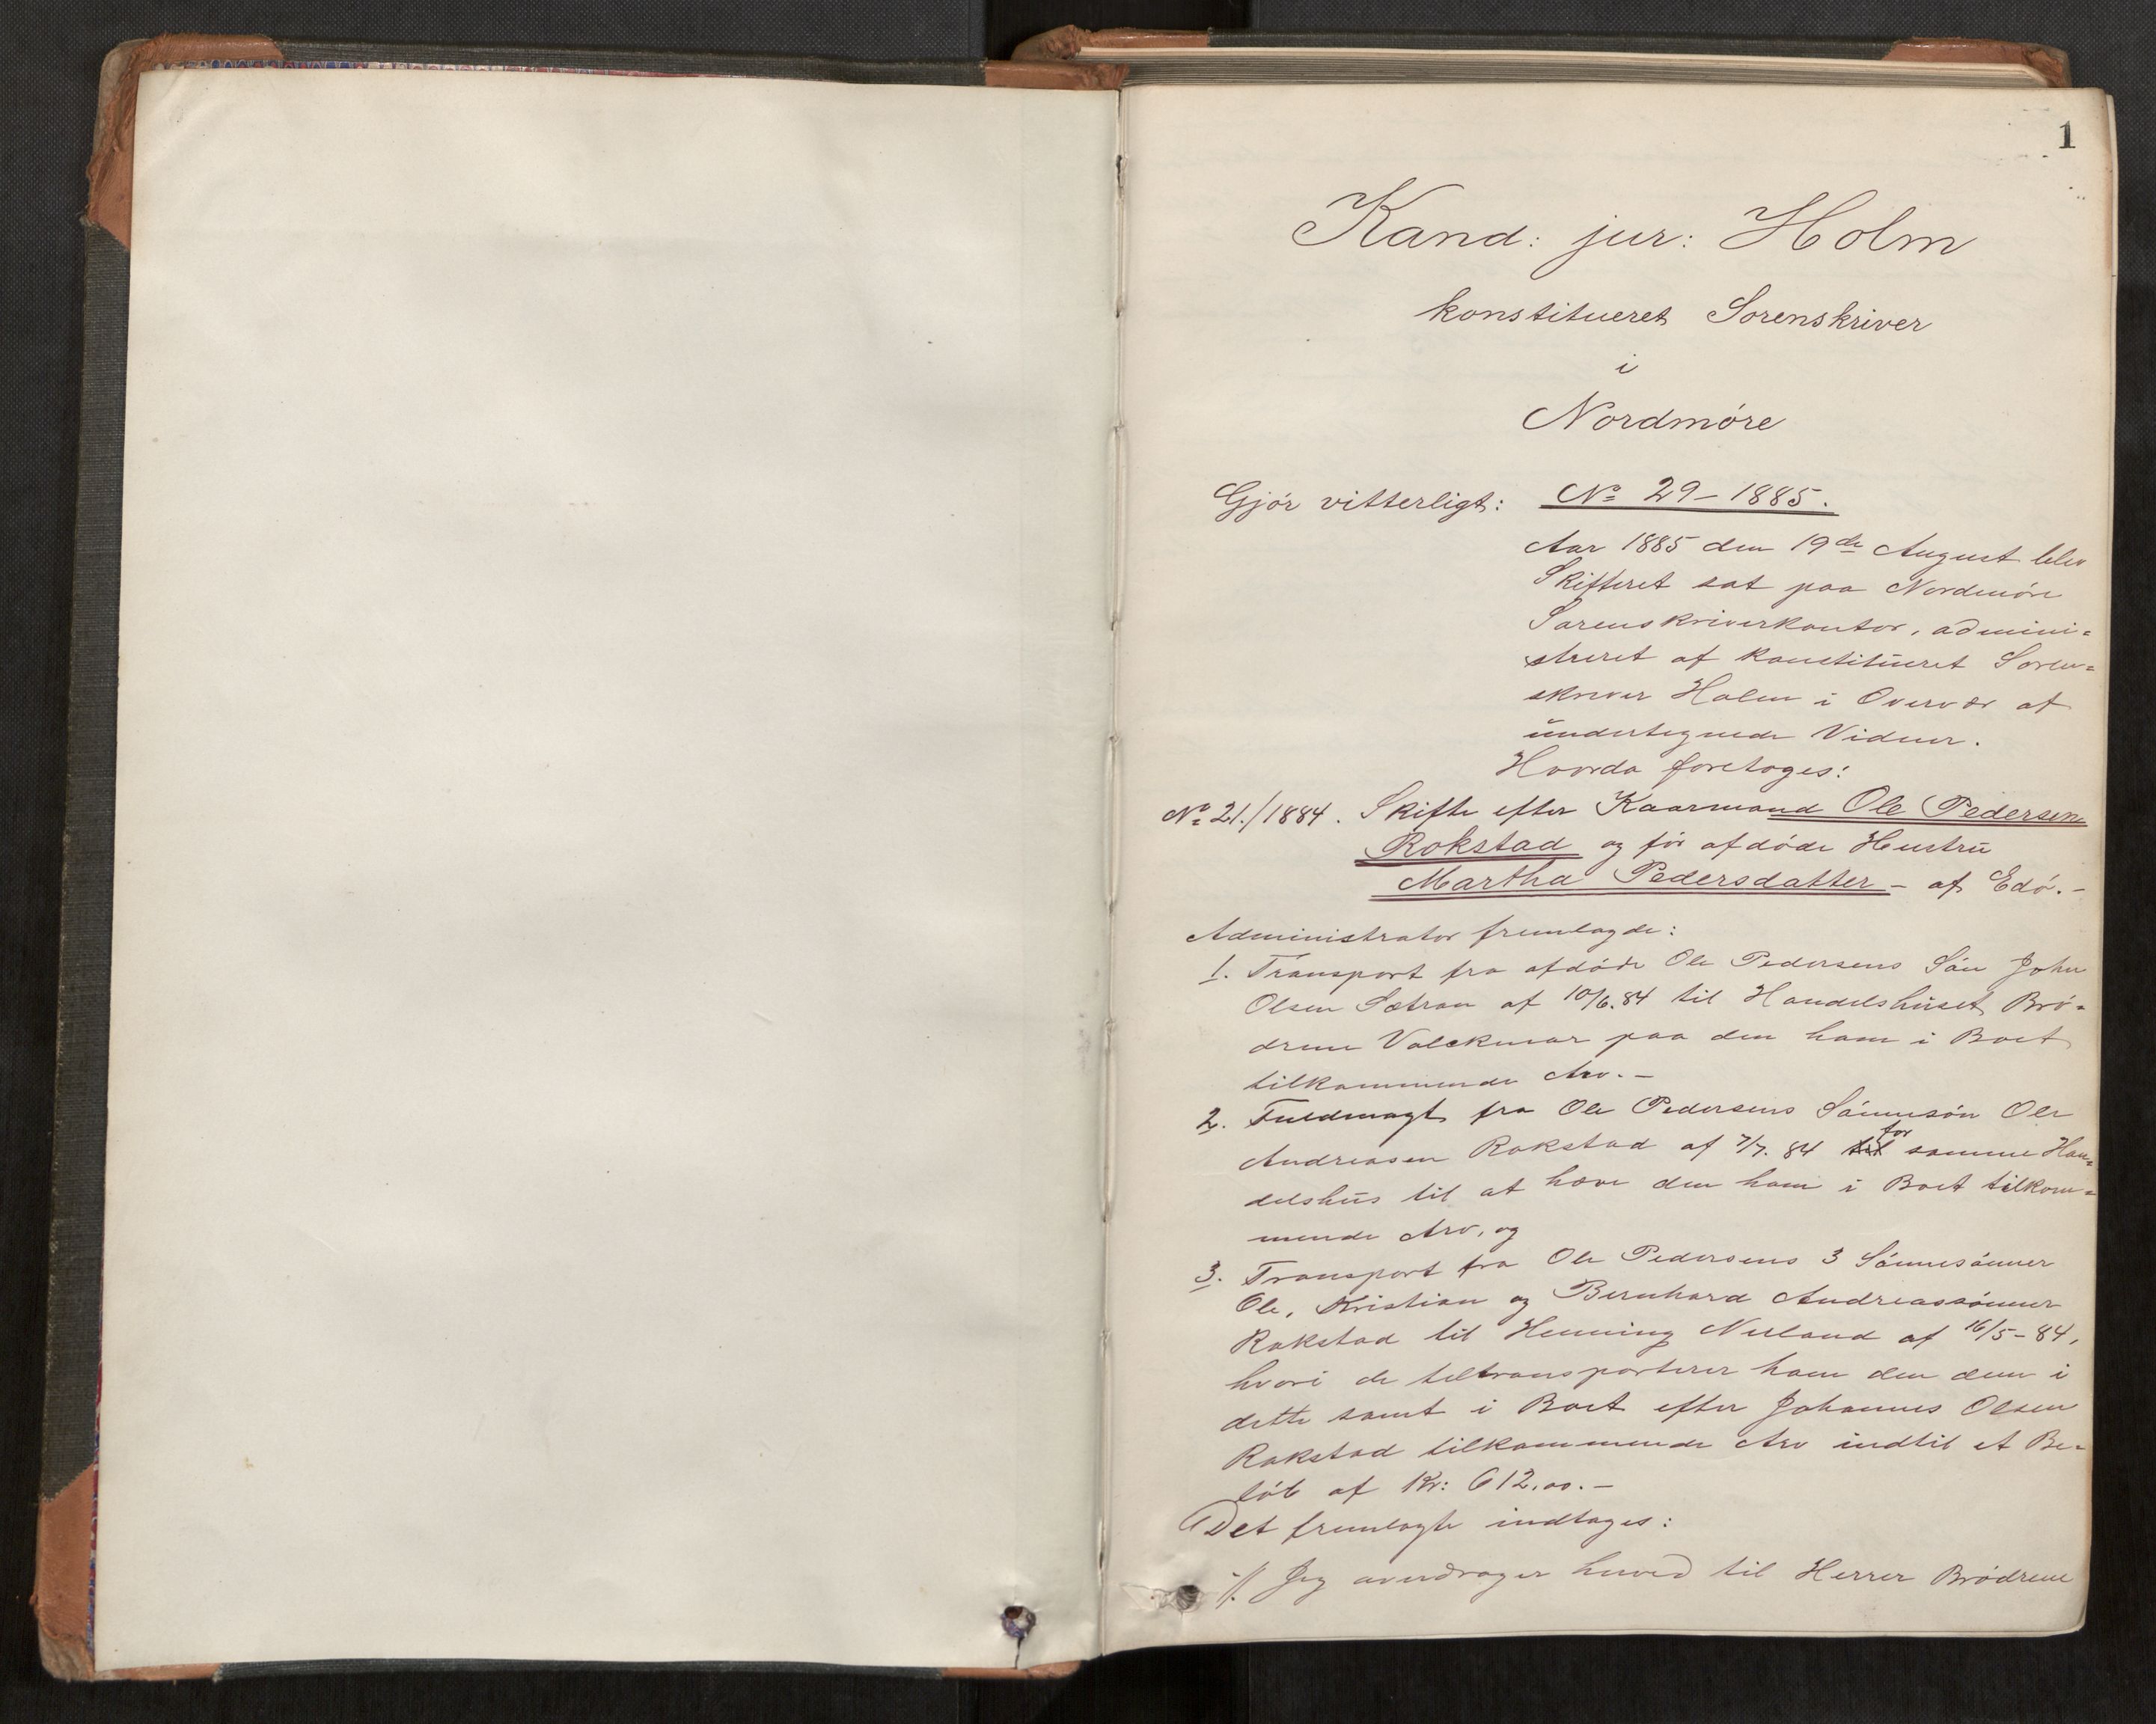 1
Kand: jur: Holm
konstitueret Sorenskriver
i
Nordmøre
Gjør vitterligt: No 29-1885.
Aar 1885 den 19de August blev
Skifteret sat paa Nordmøre
Sorenskriverkontor, admini=
streret af konstitueret Soren=
skriver Holm i Overvær af
undertegnede Vidner.
Hvorda foretoges:
No 21./1884. Skifte efter Kaarmand Ole Pedersen
Rokstad og før afdøde Hustru
Martha Pedersdatter - af Edø.-
Administrator fremlagde:
1. Transport fra afdøde Ole Pedersens Søn John
Olsen Sætran af 10/6.84 til Handelshuset Brø=
drene Volckmar paa den ham i Boet
tilkommende Arv.-
2. Fuldmagt fra Ole Pedersens Sønnesøn Ole
Andreasen Rokstad af 7/7. 84 til for samme Han=
delshus til at hæve den ham i Boet tilkom=
mende Arv, og
3. Transport fra Ole Pedersens 3 Sønnesønner
Ole, Kristian og Bernhard Andreassønner
Rokstad til Henning Neeland af 16/5-84,
hvori de tiltransporterer ham den dem i
dette samt i Boet efter Johannes Olsen
Rokstad tilkommende Arv indtil et Be=
løb af Kr: 612,00.-
Det fremlagte indtages:
1/. Jeg overdrager herved til Herrer Brødrene